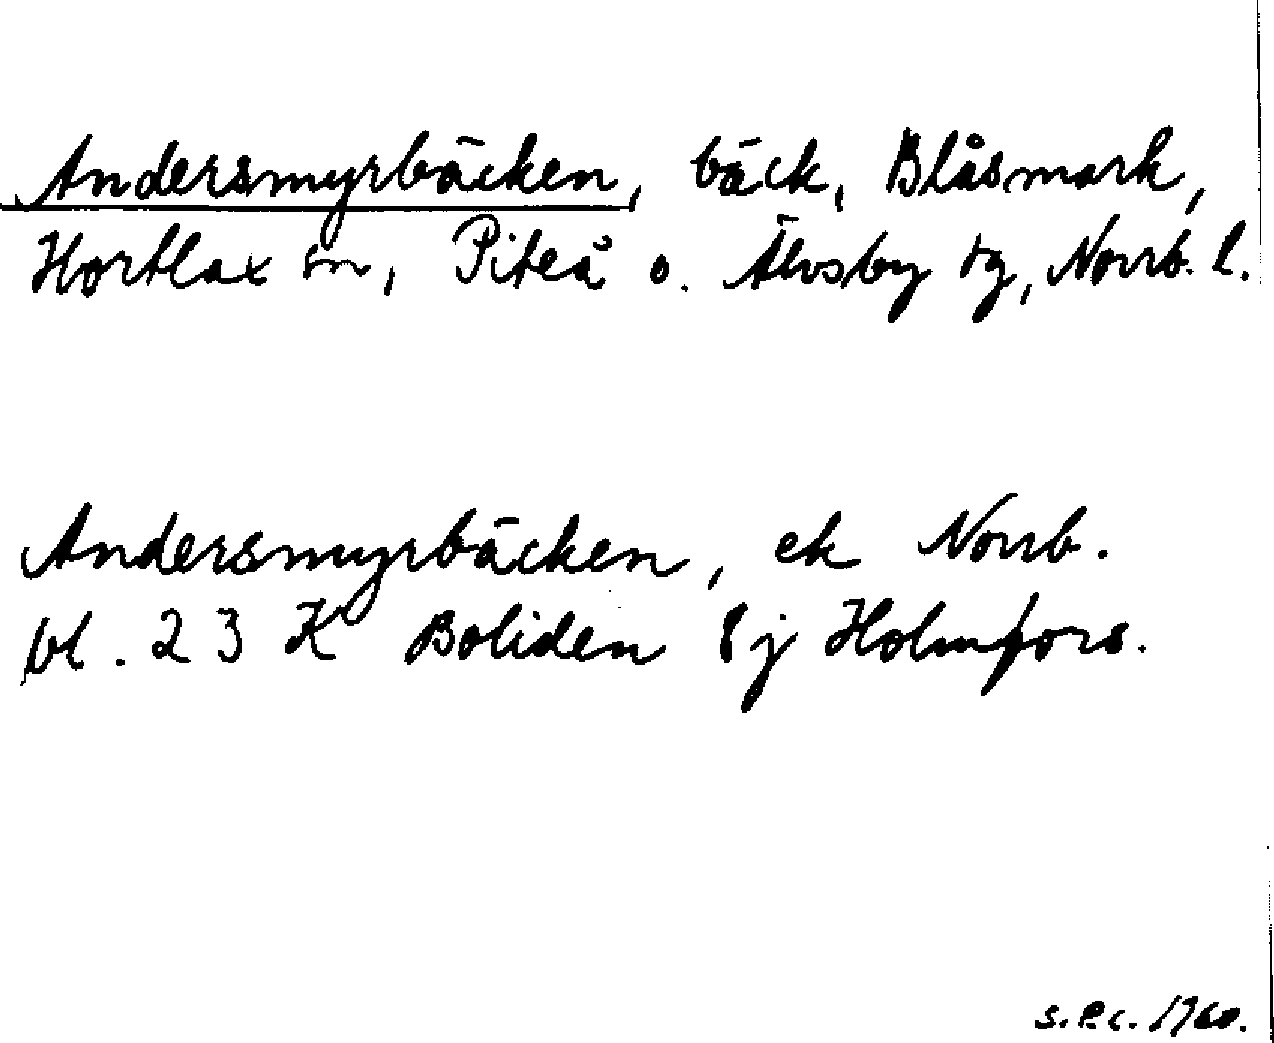 Andersmyrbäcken, bäck, Blåsmark,
Hortlax sn, Piteå o. Älvsby tg, Norrb. l.
Andersmyrbäcken, ek Norrb.
bl. 23 K Boliden 8j Holmfors.
S.P.C. 1960.